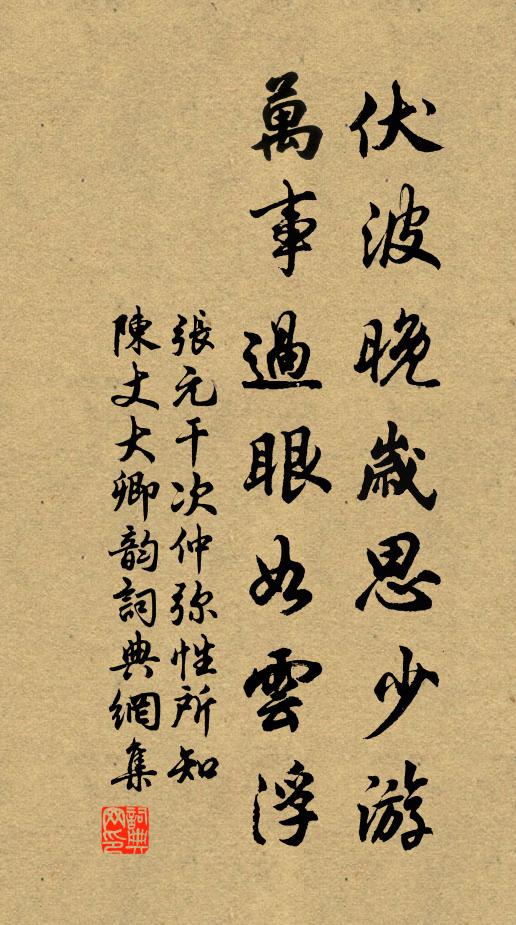 伏波晚歲思少游
萬事過眼如雲浮
張元干次仲弥性所知
陳丈大卿韵詞典網集
詞典网印